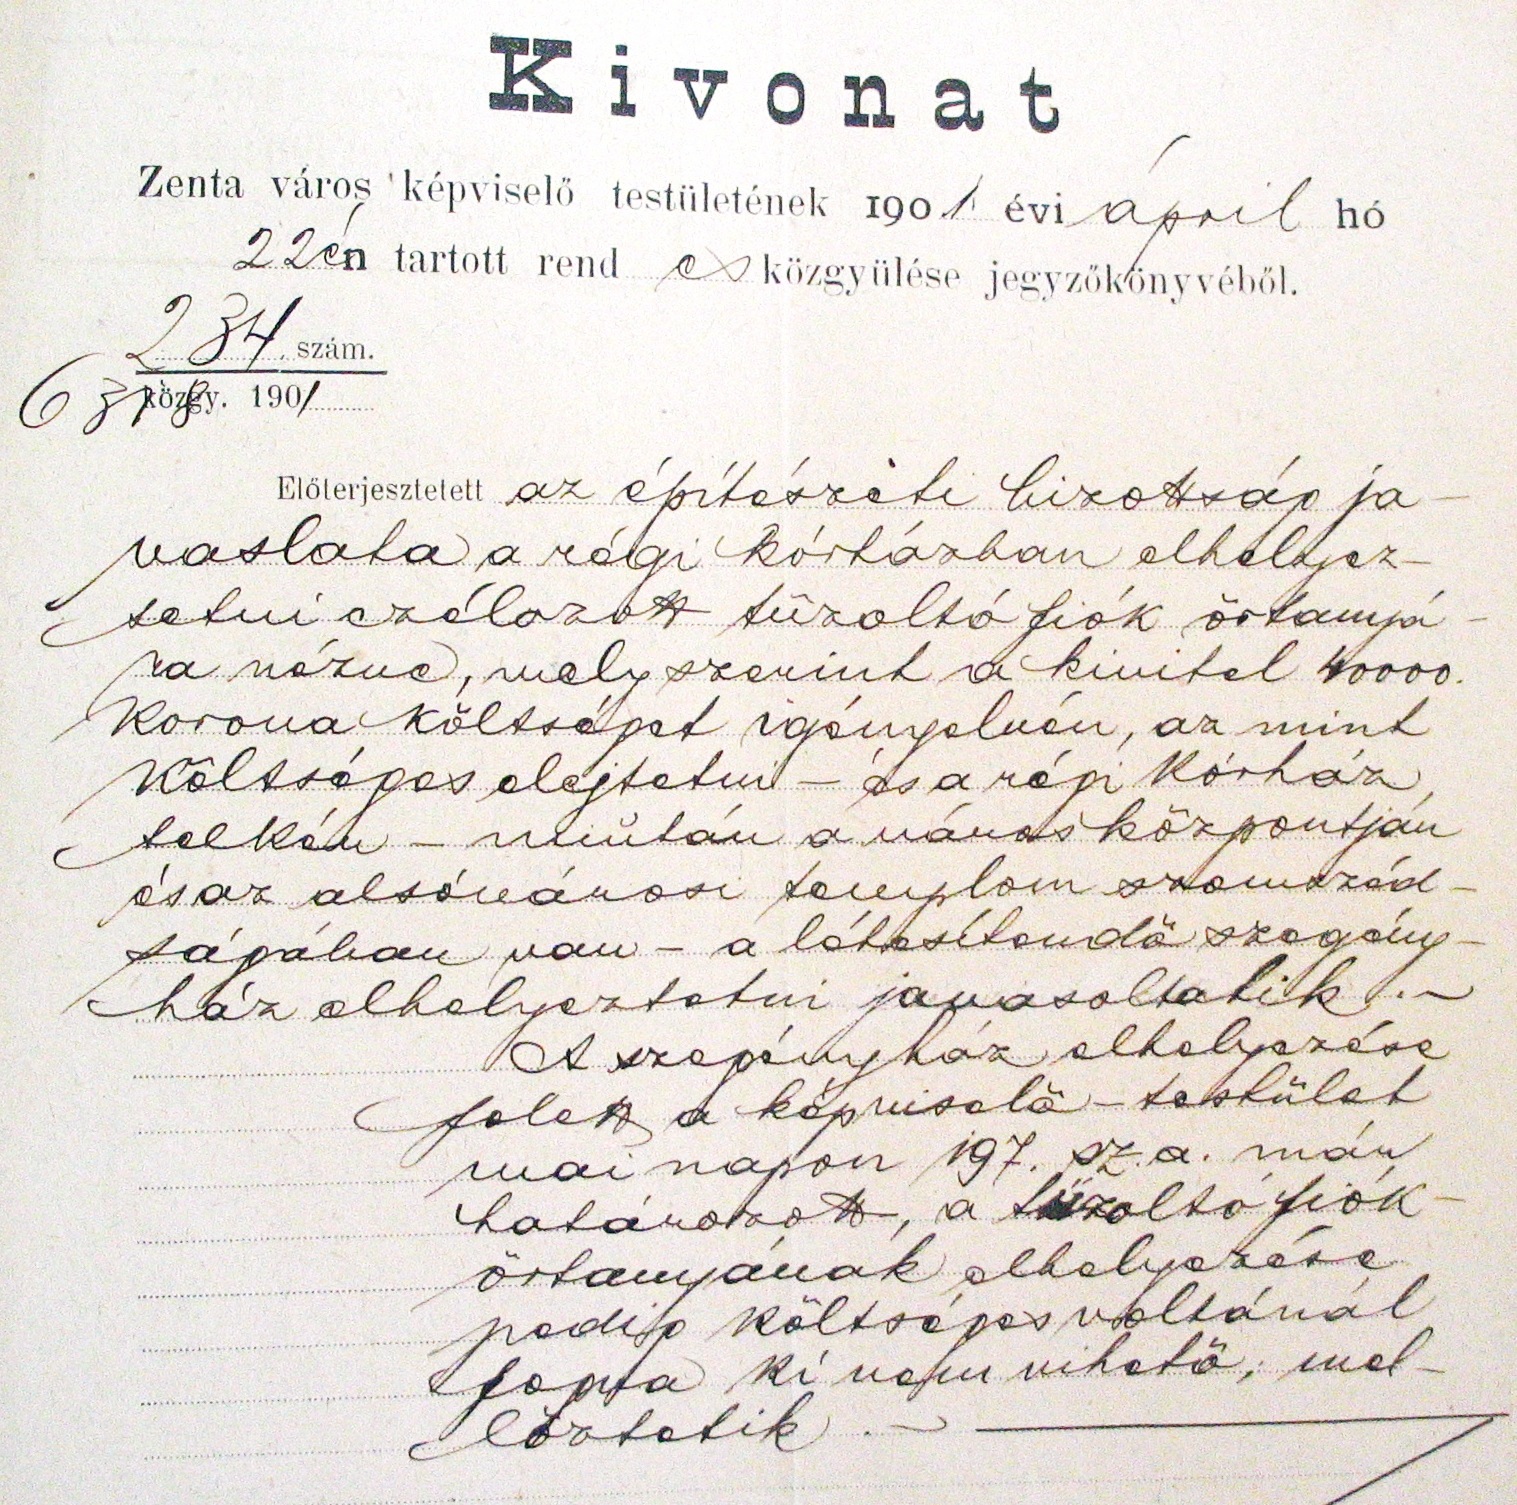 Kivonat
Zenta város képviselő testületének 1901 évi ápril hó
22én tartott rend es közgyülése jegyzőkönyvéből.
234. szám.
közgy. 1901
Előterjesztetett az építészeti bizottság ja-
vaslata a régi kórházban elhelyez-
tetni czélozott tűzoltó fiók őrtanyá-
ra nézve, mely szerint a kivitel 40000.
korona költséget igényelvén, az mint
költséges elejtetni - és a régi kórház
telkén - miután a város központján
és az alsóvárosi templom szomszéd-
ságában van - a létesítendő szegény-
ház elhelyeztetni javasoltatik. -
A szegényház elhelyezése
felett a képviselő-testület
mai napon 197. sz. a. már
határozott, a tűzoltó fiók-
őrtanyának elhelyezése
pedig költséges voltánál
fogva ki nem vihető, mel-
lőztetik. -